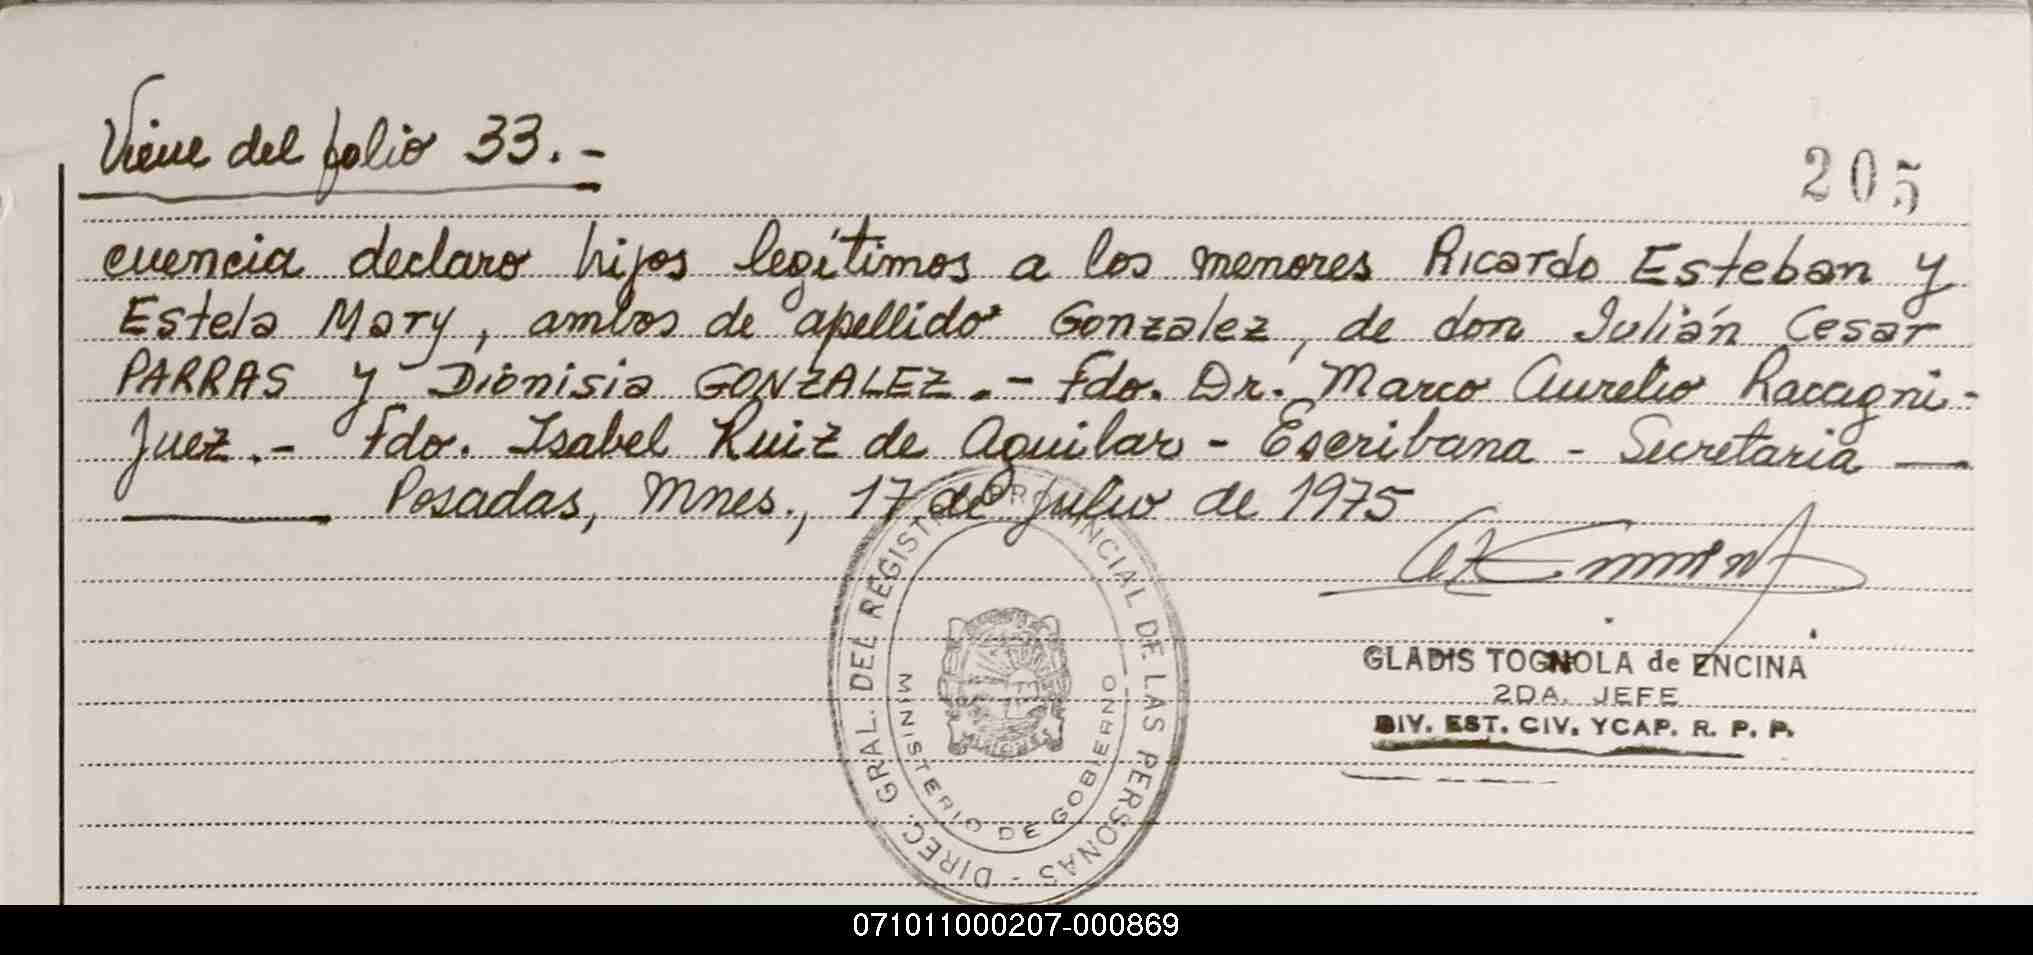 Viene del folio 33.-
205
cuencia declaro hijos legítimos a los menores Ricardo Esteban y
Estela Mary, ambos de apellido Gonzalez, de don Julián Cesar
PARRAS y Dionisia GONZALEZ.- Fdo. Dr. Marco Aurelio Racagni-
Juez.- Fdo. Isabel Ruiz de Aguilar - Escribana - Secretaria
Posadas, Mnes., 17 de Julio de 1975
DIREC. GRAL. DEL REGISTRO PROVINCIAL DE LAS PERSONAS -
MINISTERIO DE GOBIERNO
GLADIS TOGNOLA de ENCINA
2DA. JEFE
DIV. EST. CIV. YCAP. R. P. P.
071011000207-000869